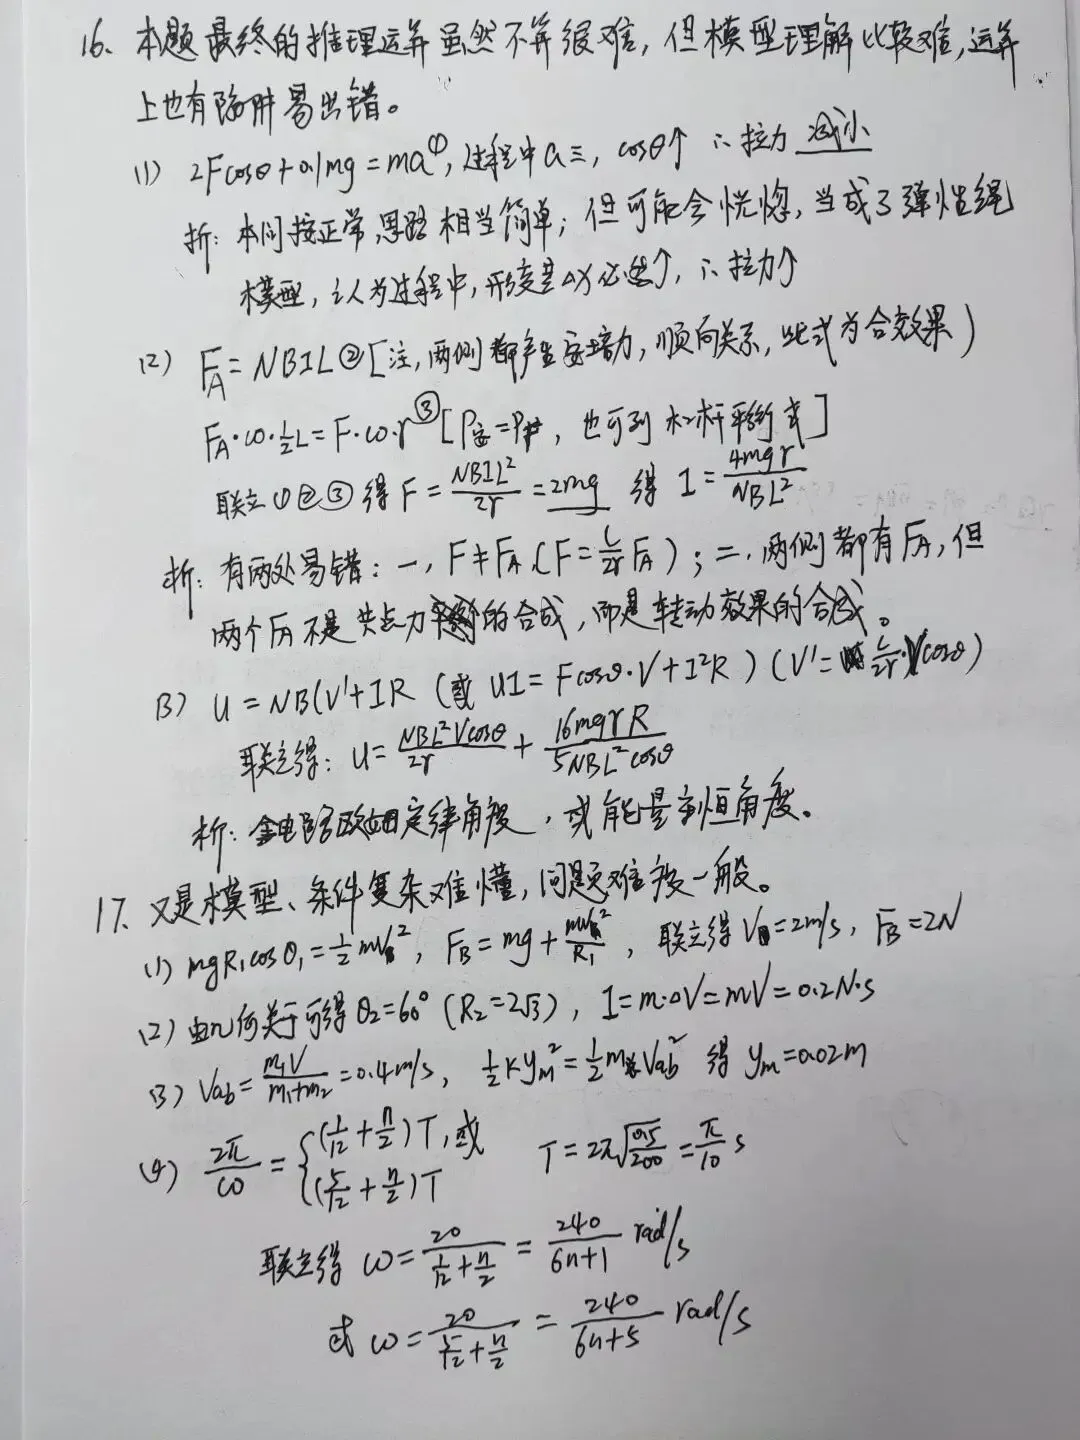 16、本题最终的推理运算虽然不算很难,但模型理解比较难,运算
上也有陷阱易出错。
(1) 2Fcosθ+0.1mg=ma①,过程中a三,cosθ↑ ∴拉力 减小
析:本问按正常思路相当简单;但可能会恍惚,当成了弹性绳
模型,认为过程中,形变量Δx必然↑,∴拉力↑
(2) F_A=NBIL②[注,两侧都产生安培力,顺向关系,此式为合效果)
F_A·ω·½L=F·ω·r③[P安=P外,也可列杠杆平衡式]
联立①②③得 F=NBIL²/2r=2mg 得 I=4mgr/NBL²
析:有两处易错:一,F≠F_A(F=L/2r F_A);二,两侧都有F_A,但
两个F_A不是共点力的合成,而是转动效果的合成。
(3) U=NBLV'+IR (或 UI=Fcosθ·V+I²R)(V'=L/2r·Vcosθ)
联立得:U=NBL²Vcosθ/2r+16mgrR/5NBL²cosθ
析:全电路欧姆定律角度,或能量守恒角度。
17、又是模型、条件复杂难懂,问题难度一般。
(1) mgR₁cosθ₁=½mV_B²,F_B=mg+mV_B²/R₁,联立得V_B=2m/s,F_B=2N
(2) 由几何关于可得θ₂=60°(R₂=2√3),I=m·ΔV=mV=0.2N·s
(3) V_ab=m₁V/m₁+m₂=0.4m/s,½ky_m²=½m V_ab² 得 y_m=0.02m
(4) 2π/ω={(1/12+n/2)T,或 T=2π√0.5/200=π/10 s
(5/12+n/2)T
联立得 ω=20/(1/12+n/2)=240/6n+1 rad/s
或 ω=20/(5/12+n/2)=240/6n+5 rad/s